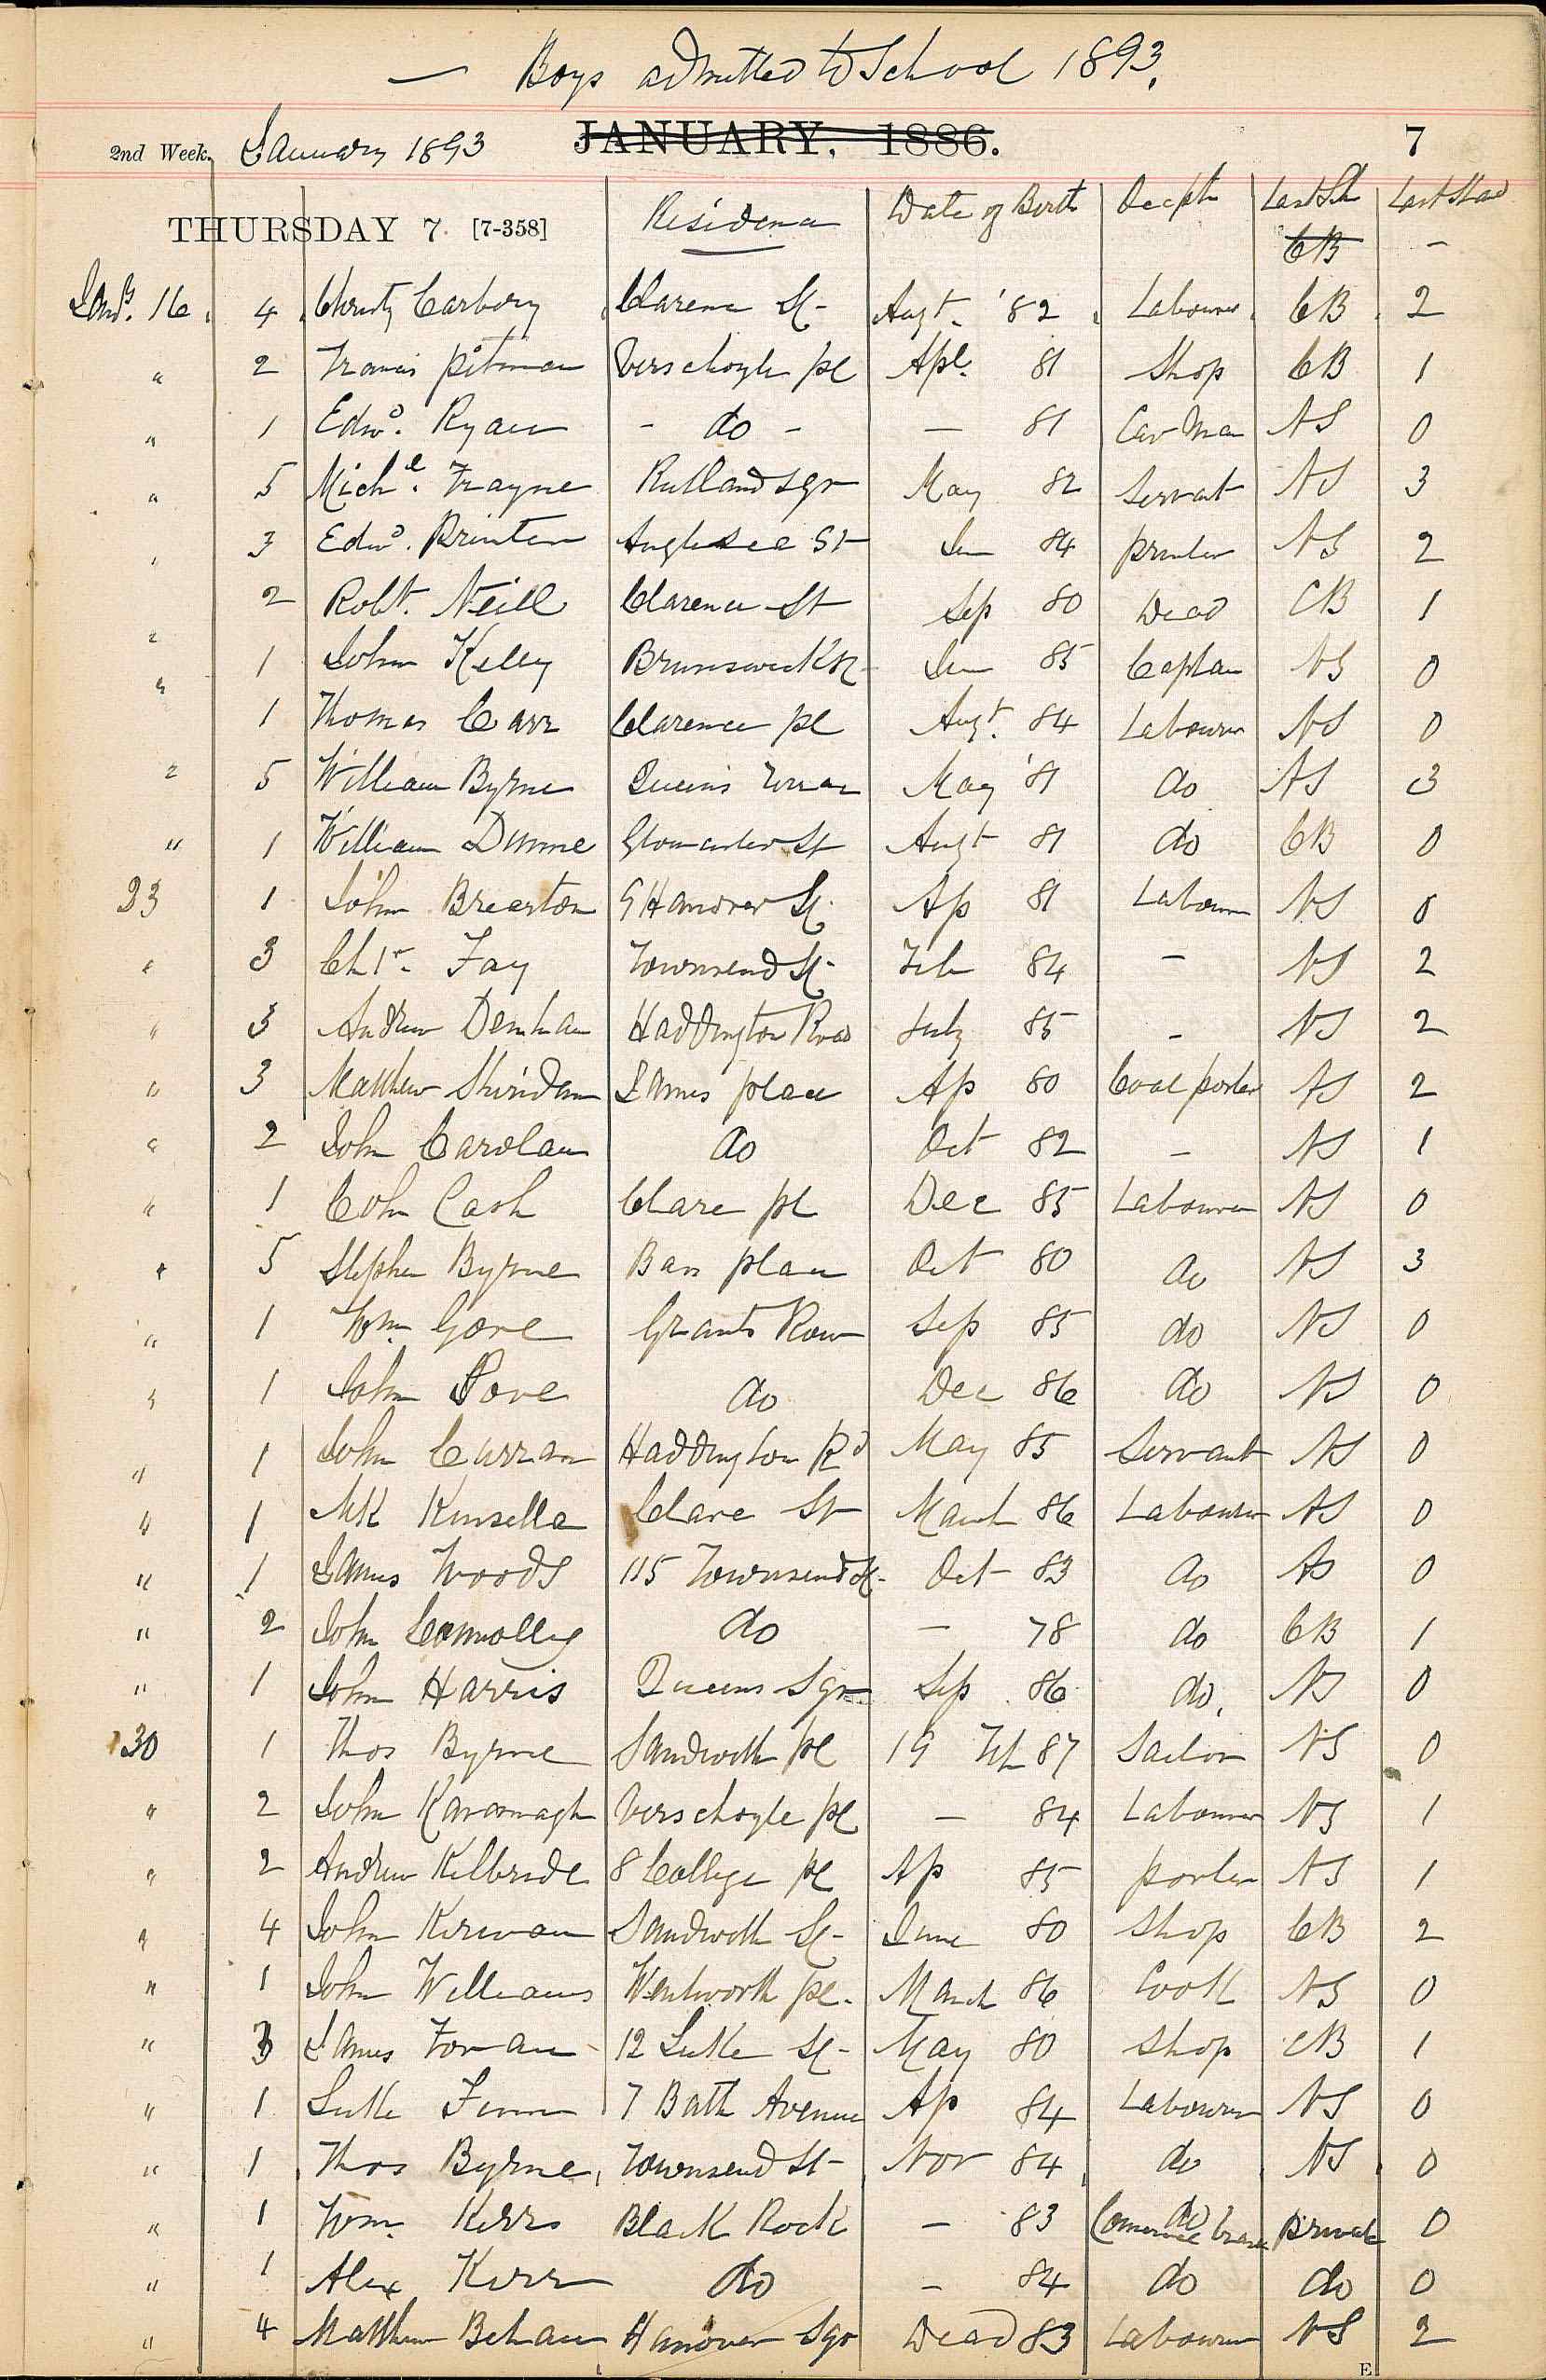 — Boys admitted to School 1893.
2nd Week. January 1893 JANUARY, 1886. 7
THURSDAY 7 [7-358] Residence Date of Birth Occptn Last Sch Last Stand
CB —
Jany. 16. 4 Christy Carbery Clarence St. Augt. '82 Labourer CB 2
" 2 Francis Pitman Verschoyle pl Apl. 81 Shop CB 1
" 1 Edwd. Ryan - do - — 81 Car Man NS 0
" 5 Michl. Frayne Rutland sqr May 82 Servant NS 3
" 3 Edwd. Brinten Anglesea St Jan 84 printer NS 2
" 2 Robt. Neill Clarence St Sep 80 Dead CB 1
" 1 John Kelly Brunswick St Jan 85 Captain NS 0
1 Thomas Carr Clarence pl Augt. 84 Labourer NS 0
" 5 William Byrne Queens Terrace May '81 do NS 3
" 1 William Dunne Gloucester St Augt 81 do CB 0
23 1 John Brearton 9 Hanover St. Ap 81 Labourer NS 0
" 3 Chr. Fay Townsend St. Feb 84 — NS 2
" 3 Andrew Denham Haddington Road July 85 — NS 2
" 3 Matthew Shiridan James place Ap 80 Coal porter NS 2
" 2 John Carolan do Oct 82 — NS 1
" 1 John Cash Clare pl Dec 85 Labourer NS 0
" 5 Stephen Byrne Bass place Oct 80 do NS 3
" 1 Wm. Gore Grants Row Sep 85 do NS 0
" 1 John Pove do Dec 86 do NS 0
" 1 John Curran Haddington Rd May 85 Servant NS 0
" 1 MK Kinsella Clare St March 86 Labourer NS 0
" 1 James Woods 115 Townsend St. Oct 83 do NS 0
" 2 John Connolly do — 78 do CB 1
" 1 John Harris Queens Sqr Sep 86 do. NS 0
30 1 Thos Byrne Sandwith pl 19 Feb 87 Sailor NS 0
" 2 John Kavanagh Verschoyle pl — 84 Labourer NS 1
" 2 Andrew Kilbride 8 College pl Ap 85 porter NS 1
" 4 John Kirwan Sandwith St. June 80 Shop CB 2
" 1 John Williams Wentworth pl. March 86 Cook NS 0
" 3 James Foran 12 Luke St. May 80 Shop CB 1
" 1 Luke Finn 7 Bath Avenue Ap 84 Labourer NS 0
" 1 Thos Byrne Townsend St Nov 84 do NS 0
" 1 Wm. Kerr Black Rock — 83 do private 0
" 1 Alex Kerr do — 84 do do 0
" 4 Matthew Behan Hanover Sqr Dead 83 Labourer NS 2
E